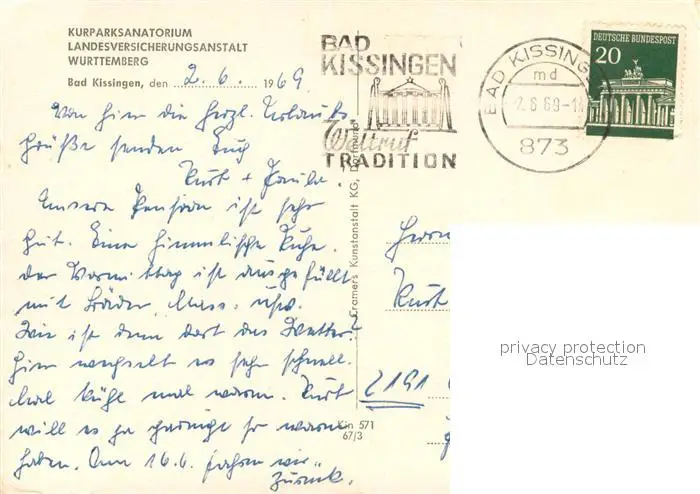 KURPARKSANATORIUM
LANDESVERSICHERUNGSANSTALT
WÜRTTEMBERG
Bad Kissingen, den 2. 6. 1969
Von hier die herzl. Urlaubs
grüße senden Euch
Kurt + Paula.
Unsere Pension ist sehr
gut. Eine himmlische Ruhe.
der Vormittag ist ausgefüllt
mit Bäder, Mass. usw.
Wie ist denn dort das Wetter?
hier wechselt es sehr schnell.
Mal kühl mal warm. Kurt
will es ja garnicht so warm
haben. Am 16.6. fahren wir
zurück.
BAD
KISSINGEN
Weltruf
TRADITION
BAD KISSING
md
-2.6.69-1
873
DEUTSCHE BUNDESPOST
20
Cramers Kunstanstalt KG, Dortmund
Herrn
Kurt
2191
Kin 571
67/3
privacy protection
Datenschutz